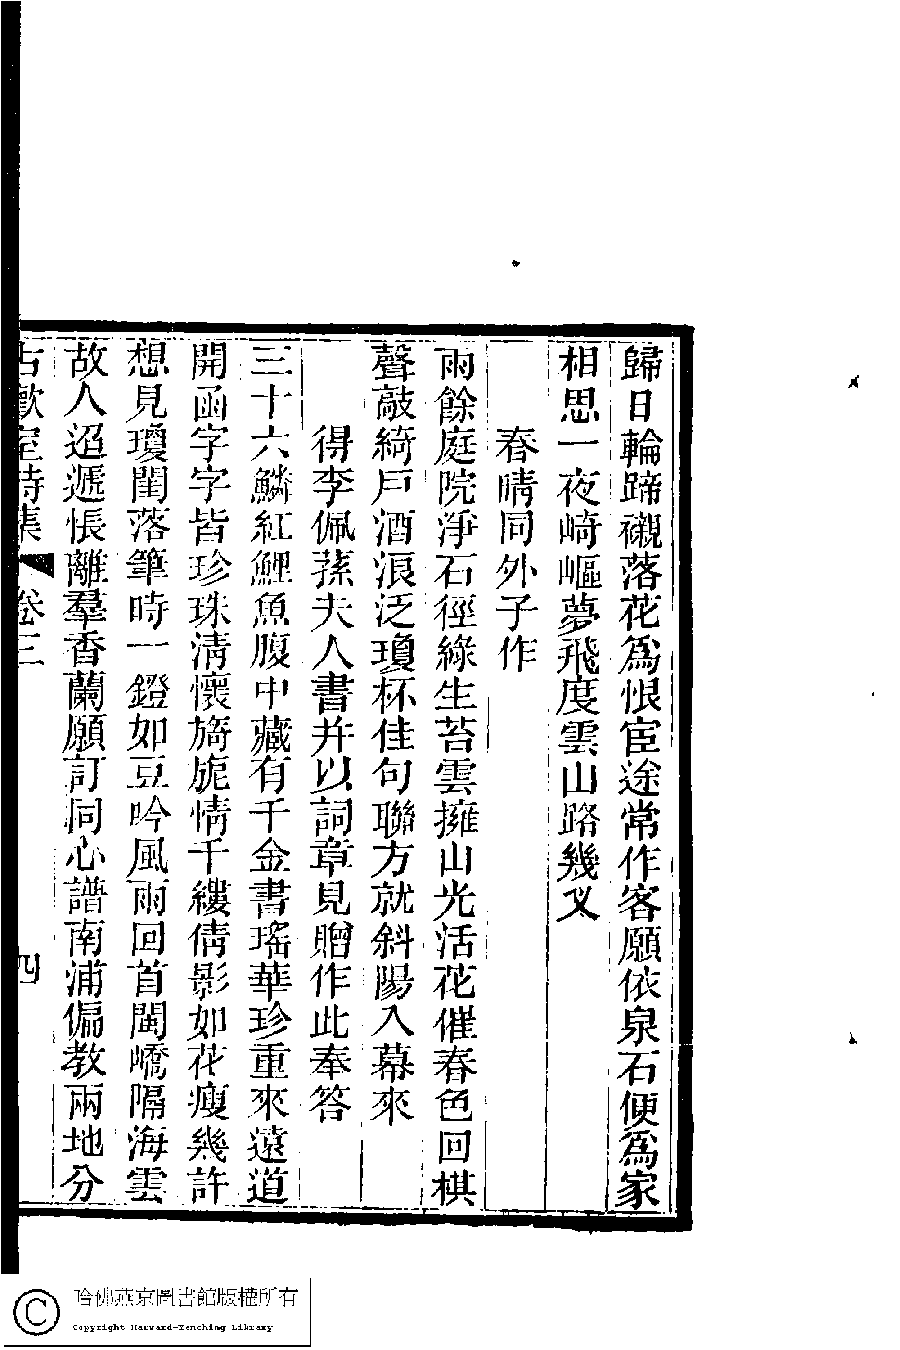 歸日輪蹄襯落花爲恨宦途常作客願依泉石便爲家
相思一夜崎嶇夢飛度雲山路幾叉
春晴同外子作
雨餘庭院淨石徑綠生苔雲擁山光活花催春色回棋
聲敲綺戶酒浪泛瓊杯佳句聯方就斜陽入幕來
得李佩蓀夫人書并以詞章見贈作此奉答
三十六鱗紅鯉魚腹中藏有千金書瑤華珍重來遠道
開函字字皆珍珠淸懷旖旎情千縷倩影如花瘦幾許
想見瓊閨落筆時一鐙如豆吟風雨回首閩嶠隔海雲
故人迢遞悵離羣香蘭願訂同心譜南浦偏教兩地分
古歡室詩集 卷三 四
哈佛燕京圖書館版權所有
Copyright Harvard-Yenching Library